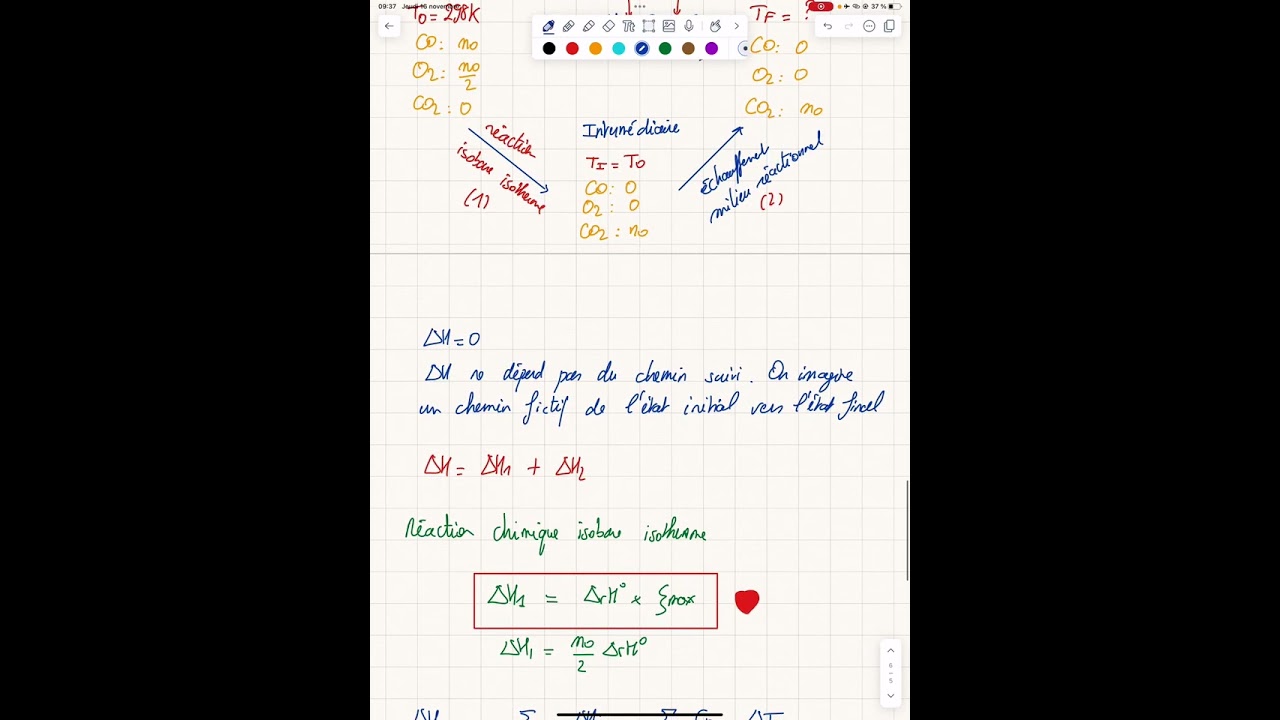 09:37 Jeudi 16 novembre
37 %
T0 = 298K
TF = ?
CO: n0
O2: n0/2
CO2: 0
CO: 0
O2: 0
CO2: n0
réaction
isobare isotherme
(1)
Intermédiaire
TI = T0
CO: 0
O2: 0
CO2: n0
échauffement
milieu réactionnel
(2)
ΔH = 0
ΔH ne dépend pas du chemin suivi. On imagine
un chemin fictif de l'état initial vers l'état final
ΔH = ΔH1 + ΔH2
Réaction chimique isobare isotherme
ΔH1 = ΔrH° × ξmax
ΔH1 = n0/2 ΔrH°
6
5